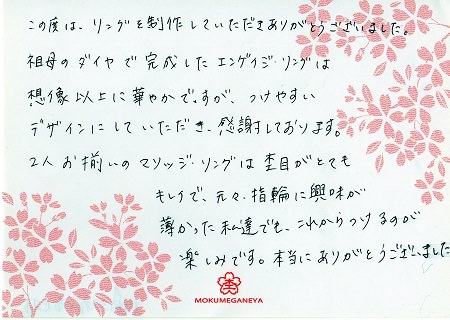 この度は、リングを制作していただきありがとうございました。
祖母のダイヤで完成したエンゲイジ・リングは
想像以上に華やかですが、つけやすい
デザインにしていただき、感謝しております。
2人お揃いのマリッジ・リングは杢目がとても
キレイで、元々指輪に興味が
薄かった私達でも、これからつけるのが
楽しみです。本当にありがとうございました
MOKUMEGANEYA